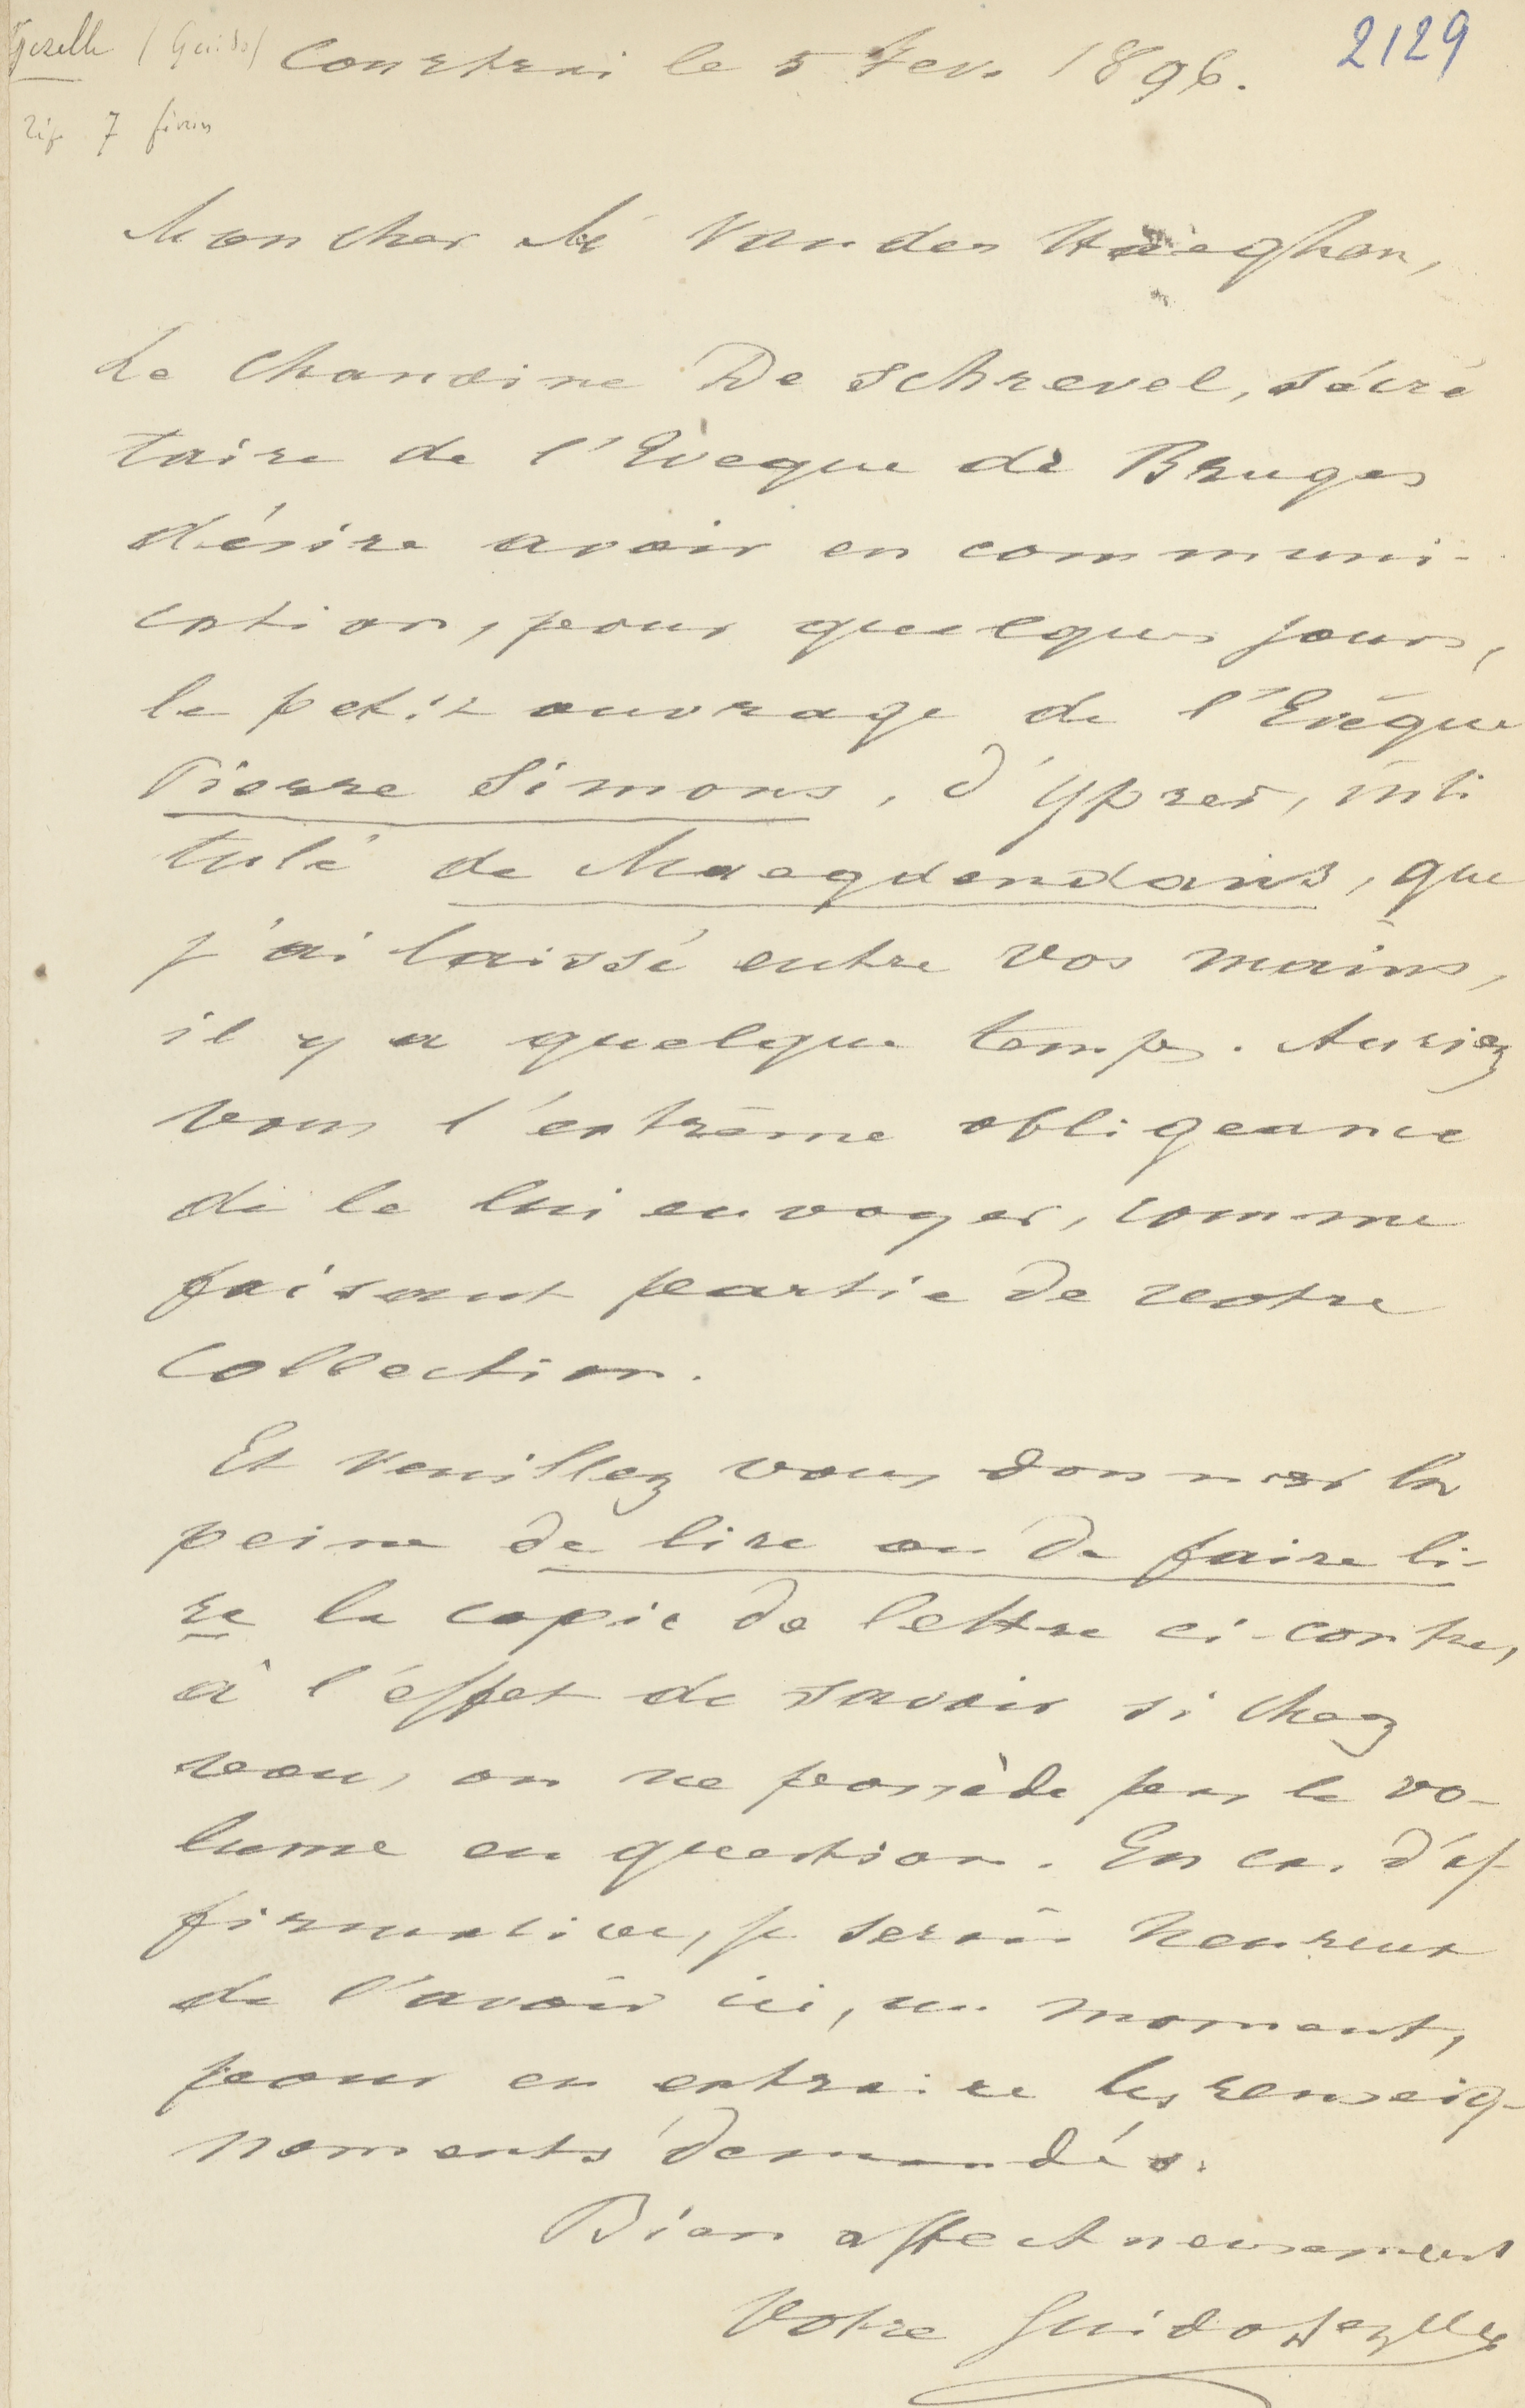 Gezelle (Guido)
Courtrai le 5 Fev. 1896.
2129
rép 7 février
Mon cher Mr Van der Haeghen,
Le Chanoine De Schrevel, sécré
taire de l'Eveque de Bruges
désire avoir en communi-
cation, pour quelques jours,
le petit ouvrage de l'Evêque
Pierre Simons, d'Ypres, inti
tulé de Maegdendans, que
j'ai laissé entre vos mains,
il y a quelque temps. Auriez
vous l'extrême obligeance
de le lui envoyer, comme
faisant partie de votre
collection.
Et veuillez vous donner la
peine de lire ou de faire li-
re la copie de lettre ci-contre,
à l'éffet de savoir si chez
vous, on ne possède pas le vo-
lume en question. En cas d'af-
firmative, je serais heureux
de l'avoir ici, un moment,
pour en extraire les renseig-
nements demandés.
Bien affectneusement
Votre Guido Gezelle